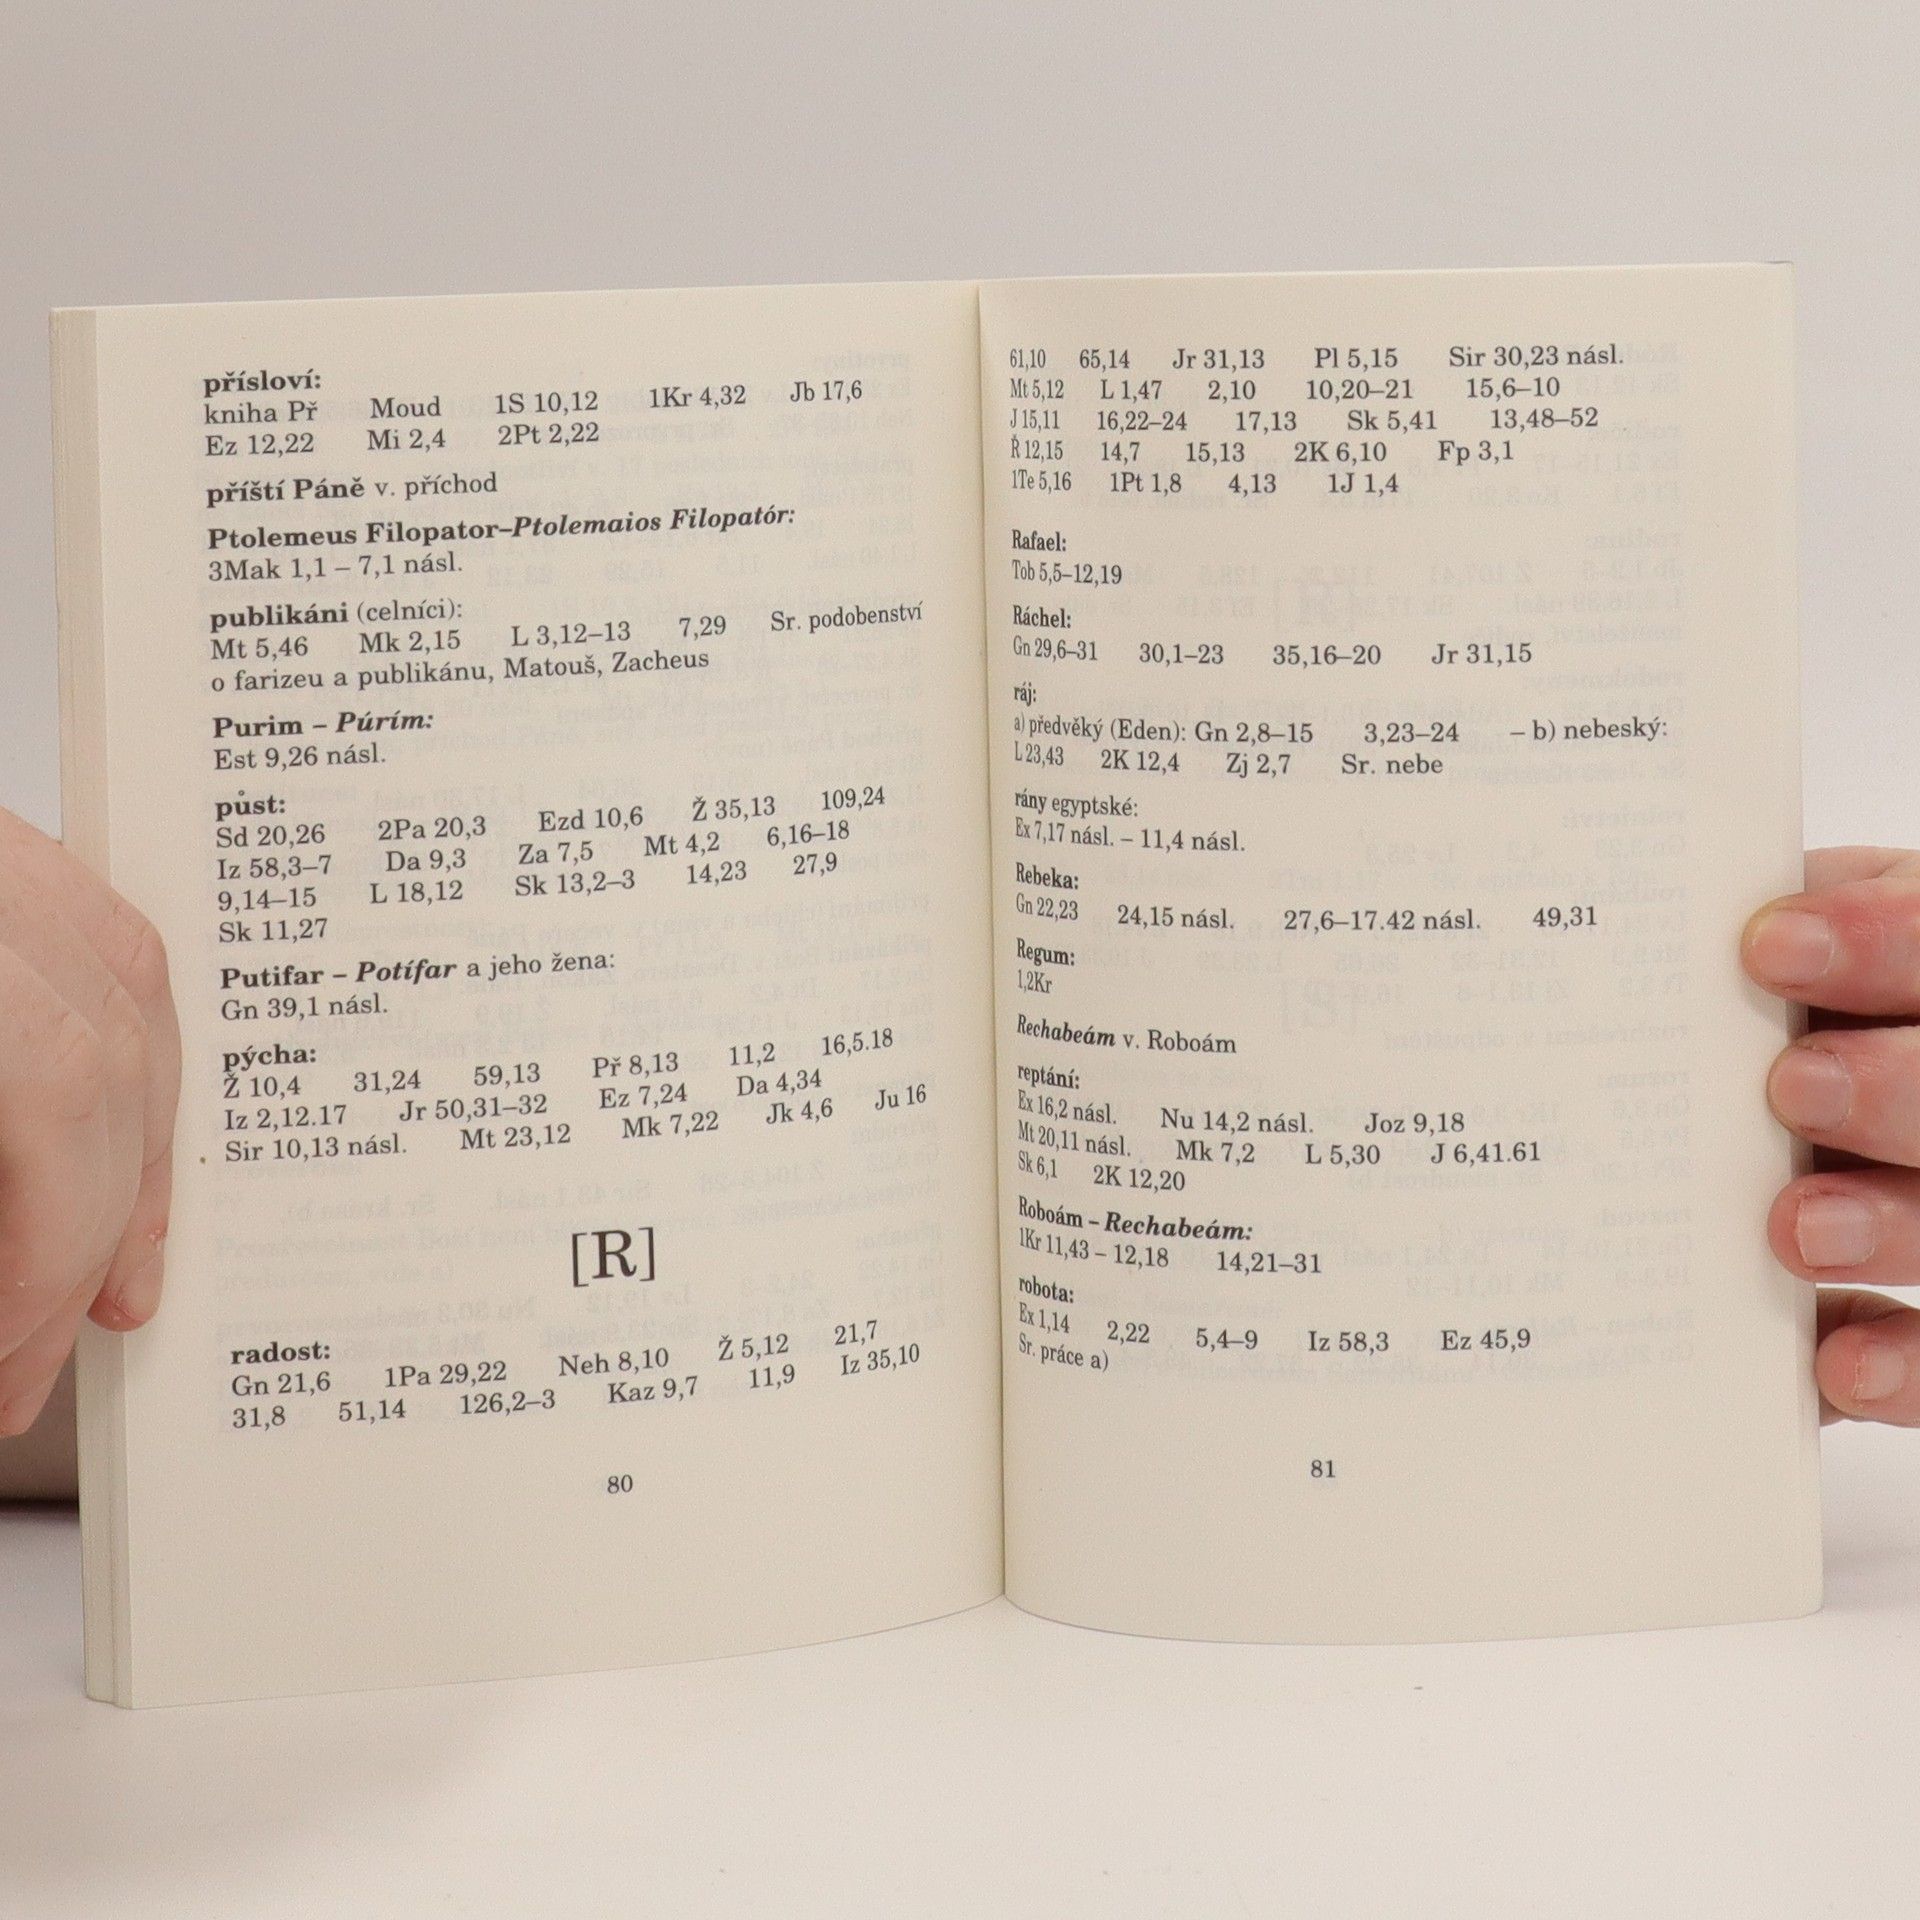 přísloví:
kniha Př Moud 1S 10,12 1Kr 4,32 Jb 17,6
Ez 12,22 Mi 2,4 2Pt 2,22
příští Páně v. příchod
Ptolemeus Filopator–Ptolemaios Filopatór:
3Mak 1,1 – 7,1 násl.
publikáni (celníci):
Mt 5,46 Mk 2,15 L 3,12–13 7,29 Sr. podobenství
o farizeu a publikánu, Matouš, Zacheus
Purim – Púrím:
Est 9,26 násl.
půst:
Sd 20,26 2Pa 20,3 Ezd 10,6 Ž 35,13 109,24
Iz 58,3–7 Da 9,3 Za 7,5 Mt 4,2 6,16–18
9,14–15 L 18,12 Sk 13,2–3 14,23 27,9
Sk 11,27
Putifar – Potífar a jeho žena:
Gn 39,1 násl.
pýcha:
Ž 10,4 31,24 59,13 Př 8,13 11,2 16,5.18
Iz 2,12.17 Jr 50,31–32 Ez 7,24 Da 4,34
Sir 10,13 násl. Mt 23,12 Mk 7,22 Jk 4,6 Ju 16
[R]
radost:
Gn 21,6 1Pa 29,22 Neh 8,10 Ž 5,12 21,7
31,8 51,14 126,2–3 Kaz 9,7 11,9 Iz 35,10
80
61,10 65,14 Jr 31,13 Pl 5,15 Sir 30,23 násl.
Mt 5,12 L 1,47 2,10 10,20–21 15,6–10
J 15,11 16,22–24 17,13 Sk 5,41 13,48–52
Ř 12,15 14,7 15,13 2K 6,10 Fp 3,1
1Te 5,16 1Pt 1,8 4,13 1J 1,4
Rafael:
Tob 5,5–12,19
Ráchel:
Gn 29,6–31 30,1–23 35,16–20 Jr 31,15
ráj:
a) předvěký (Eden): Gn 2,8–15 3,23–24 – b) nebeský:
L 23,43 2K 12,4 Zj 2,7 Sr. nebe
rány egyptské:
Ex 7,17 násl. – 11,4 násl.
Rebeka:
Gn 22,23 24,15 násl. 27,6–17.42 násl. 49,31
Regum:
1,2Kr
Rechabeám v. Roboám
reptání:
Ex 16,2 násl. Nu 14,2 násl. Joz 9,18
Mt 20,11 násl. Mk 7,2 L 5,30 J 6,41.61
Sk 6,1 2K 12,20
Roboám – Rechabeám:
1Kr 11,43 – 12,18 14,21–31
robota:
Ex 1,14 2,22 5,4–9 Iz 58,3 Ez 45,9
Sr. práce a)
81